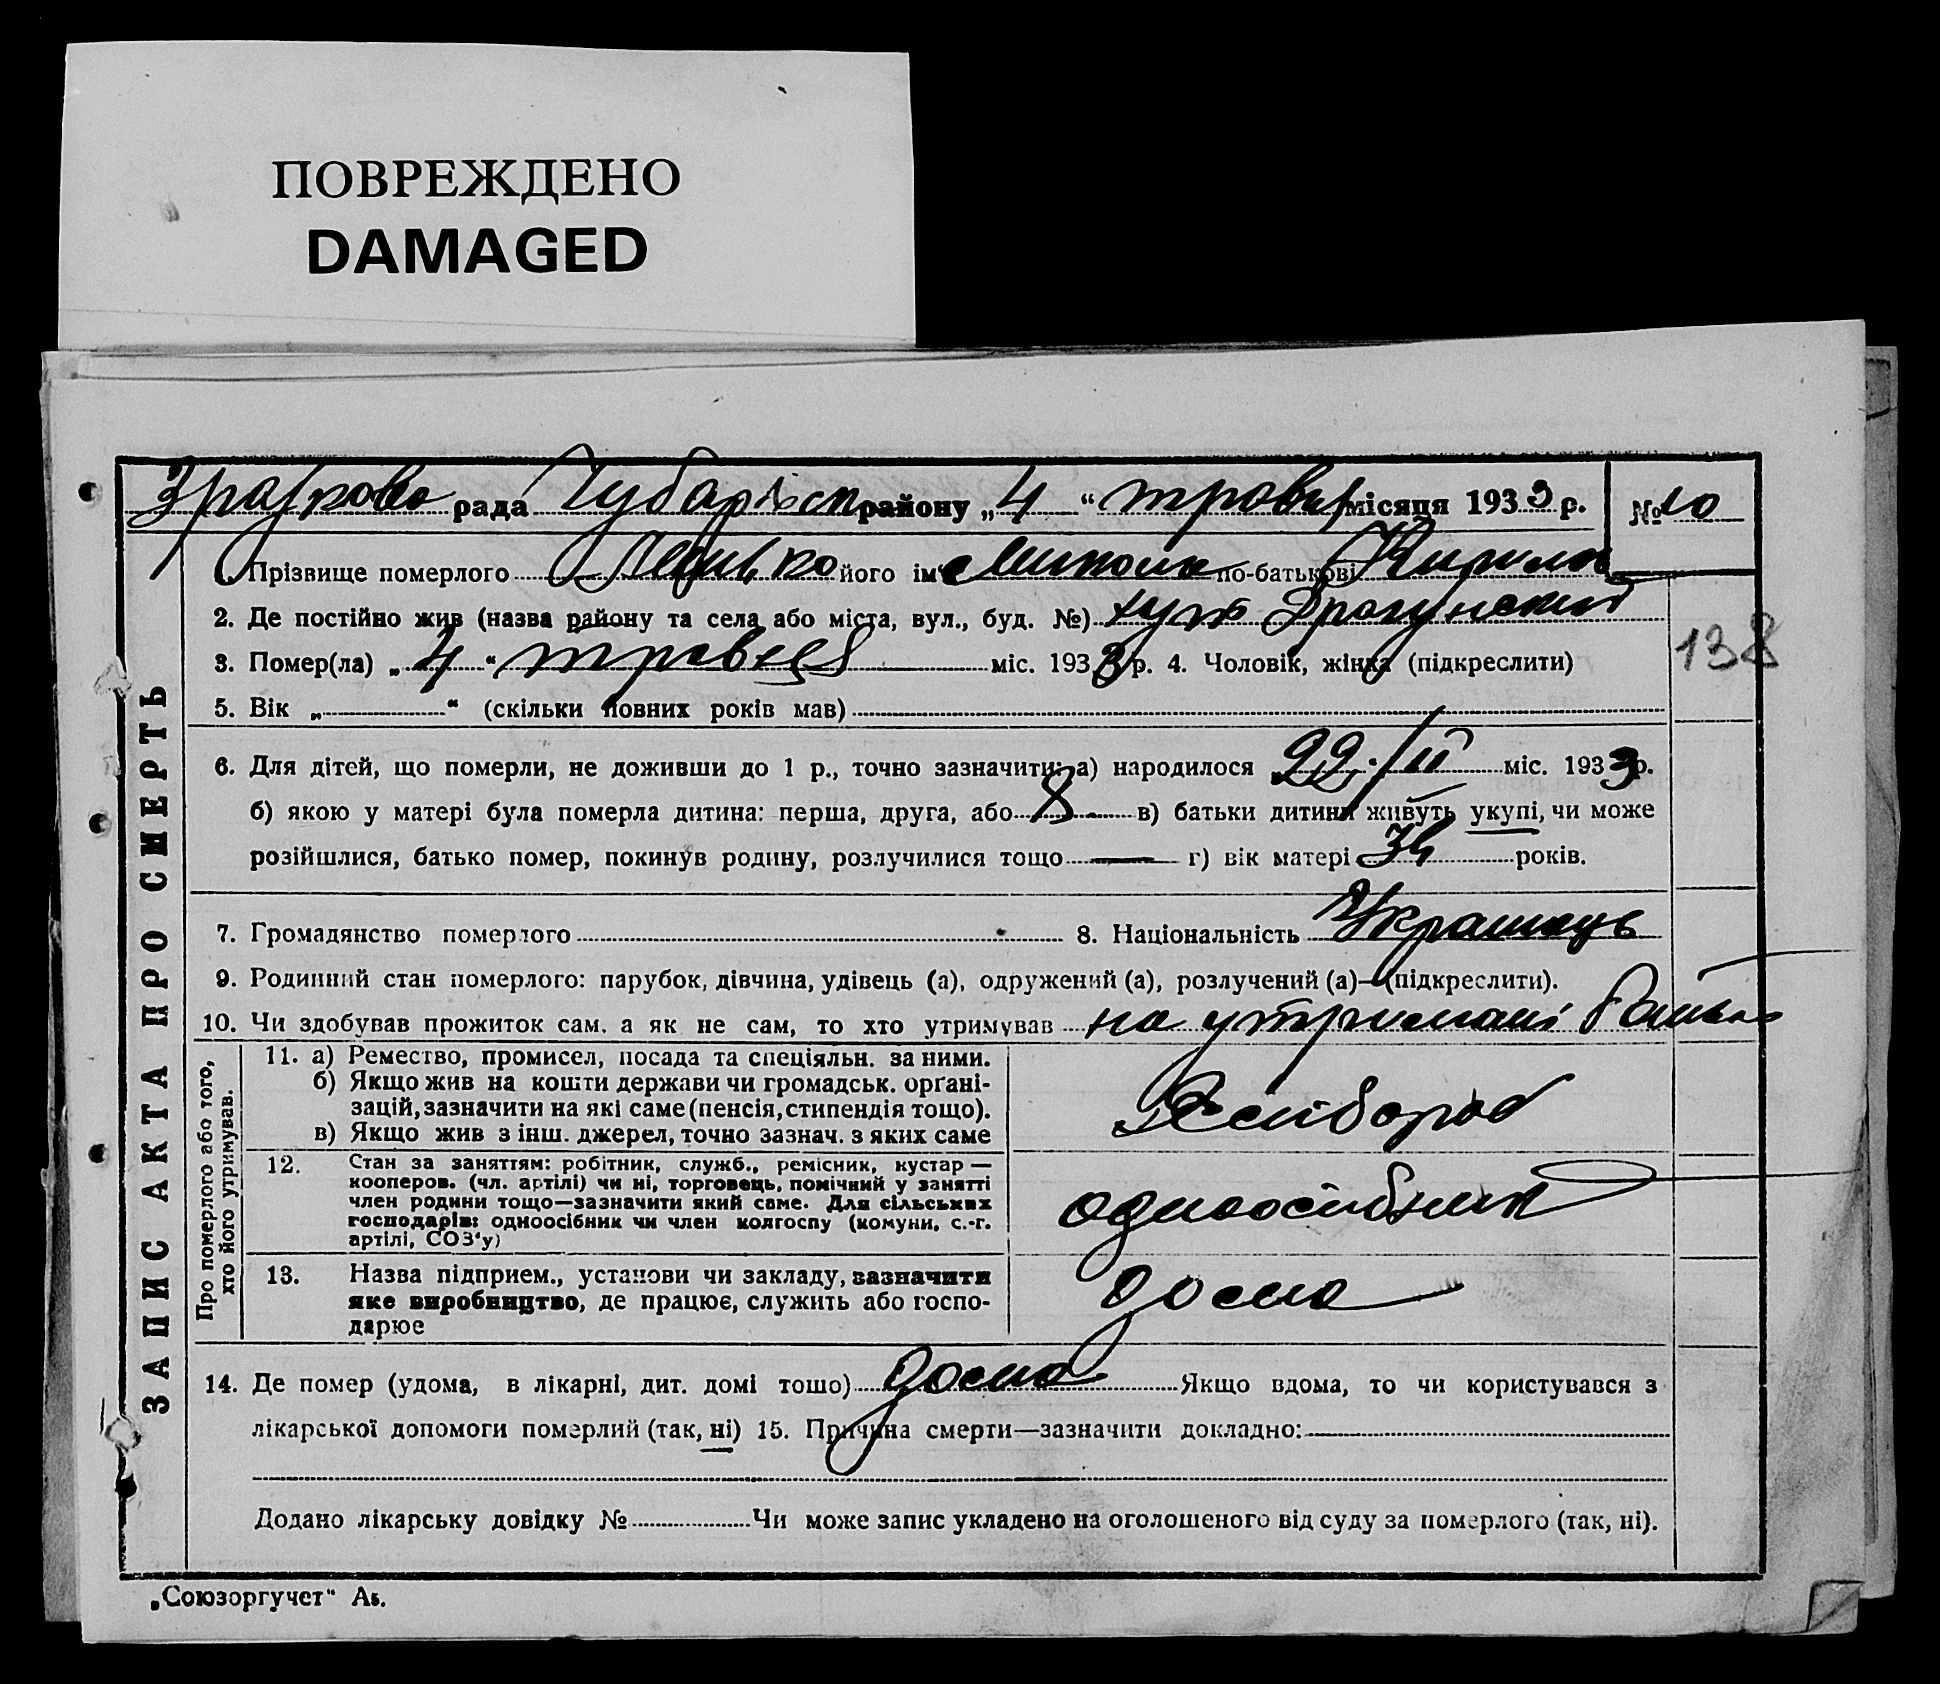 ПОВРЕЖДЕНО
DAMAGED
рада Чубарівськ району „4“ травня місяця 1933 р. № 10
1. Прізвище померлого його ім'я Микола по-батькові Кирилов
2. Де постійно жив (назва району та села або міста, вул., буд. №) хут
3. Помер(ла) „4“ травня міс. 1933 р. 4. Чоловік, жінка (підкреслити)
138
5. Вік „ “ (скільки повних років мав)
6. Для дітей, що померли, не доживши до 1 р., точно зазначити: а) народилося „22./II міс. 1933 р.
б) якою у матері була померла дитина: перша, друга, або 8 в) батьки дитини живуть укупі, чи може
розійшлися, батько помер, покинув родину, розлучилися тощо — г) вік матері років.
7. Громадянство померлого 8. Національність Українець
9. Родинний стан померлого: парубок, дівчина, удівець (а), одружений (а), розлучений (а)—(підкреслити).
10. Чи здобував прожиток сам, а як не сам, то хто утримував на утримані батька
ЗАПИС АКТА ПРО СМЕРТЬ
Про померлого або того,
хто його утримував.
11. а) Ремество, промисел, посада та спеціяльн. за ними.
б) Якщо жив на кошти держави чи громадськ. орґані-
зацій, зазначити на які саме (пенсія, стипендія тощо).
в) Якщо жив з інш. джерел, точно зазнач. з яких саме
Хлібороб
12. Стан за заняттям: робітник, служб., ремісник, кустар —
кооперов. (чл. артілі) чи ні, торговець, помічний у занятті
член родини тощо—зазначити який саме. Для сільських
господарів: одноосібник чи член колгоспу (комуни, с.-г.
артілі, СОЗ'у)
одноосібник
13. Назва підприєм., установи чи закладу, зазначити
яке виробництво, де працює, служить або госпо-
дарює
дома
14. Де помер (удома, в лікарні, дит. домі тощо) дома Якщо вдома, то чи користувався з
лікарської допомоги померлий (так, ні) 15. Причина смерти—зазначити докладно:
Додано лікарську довідку № Чи може запис укладено на оголошеного від суду за померлого (так, ні).
„Союзоргучет“ Аь.